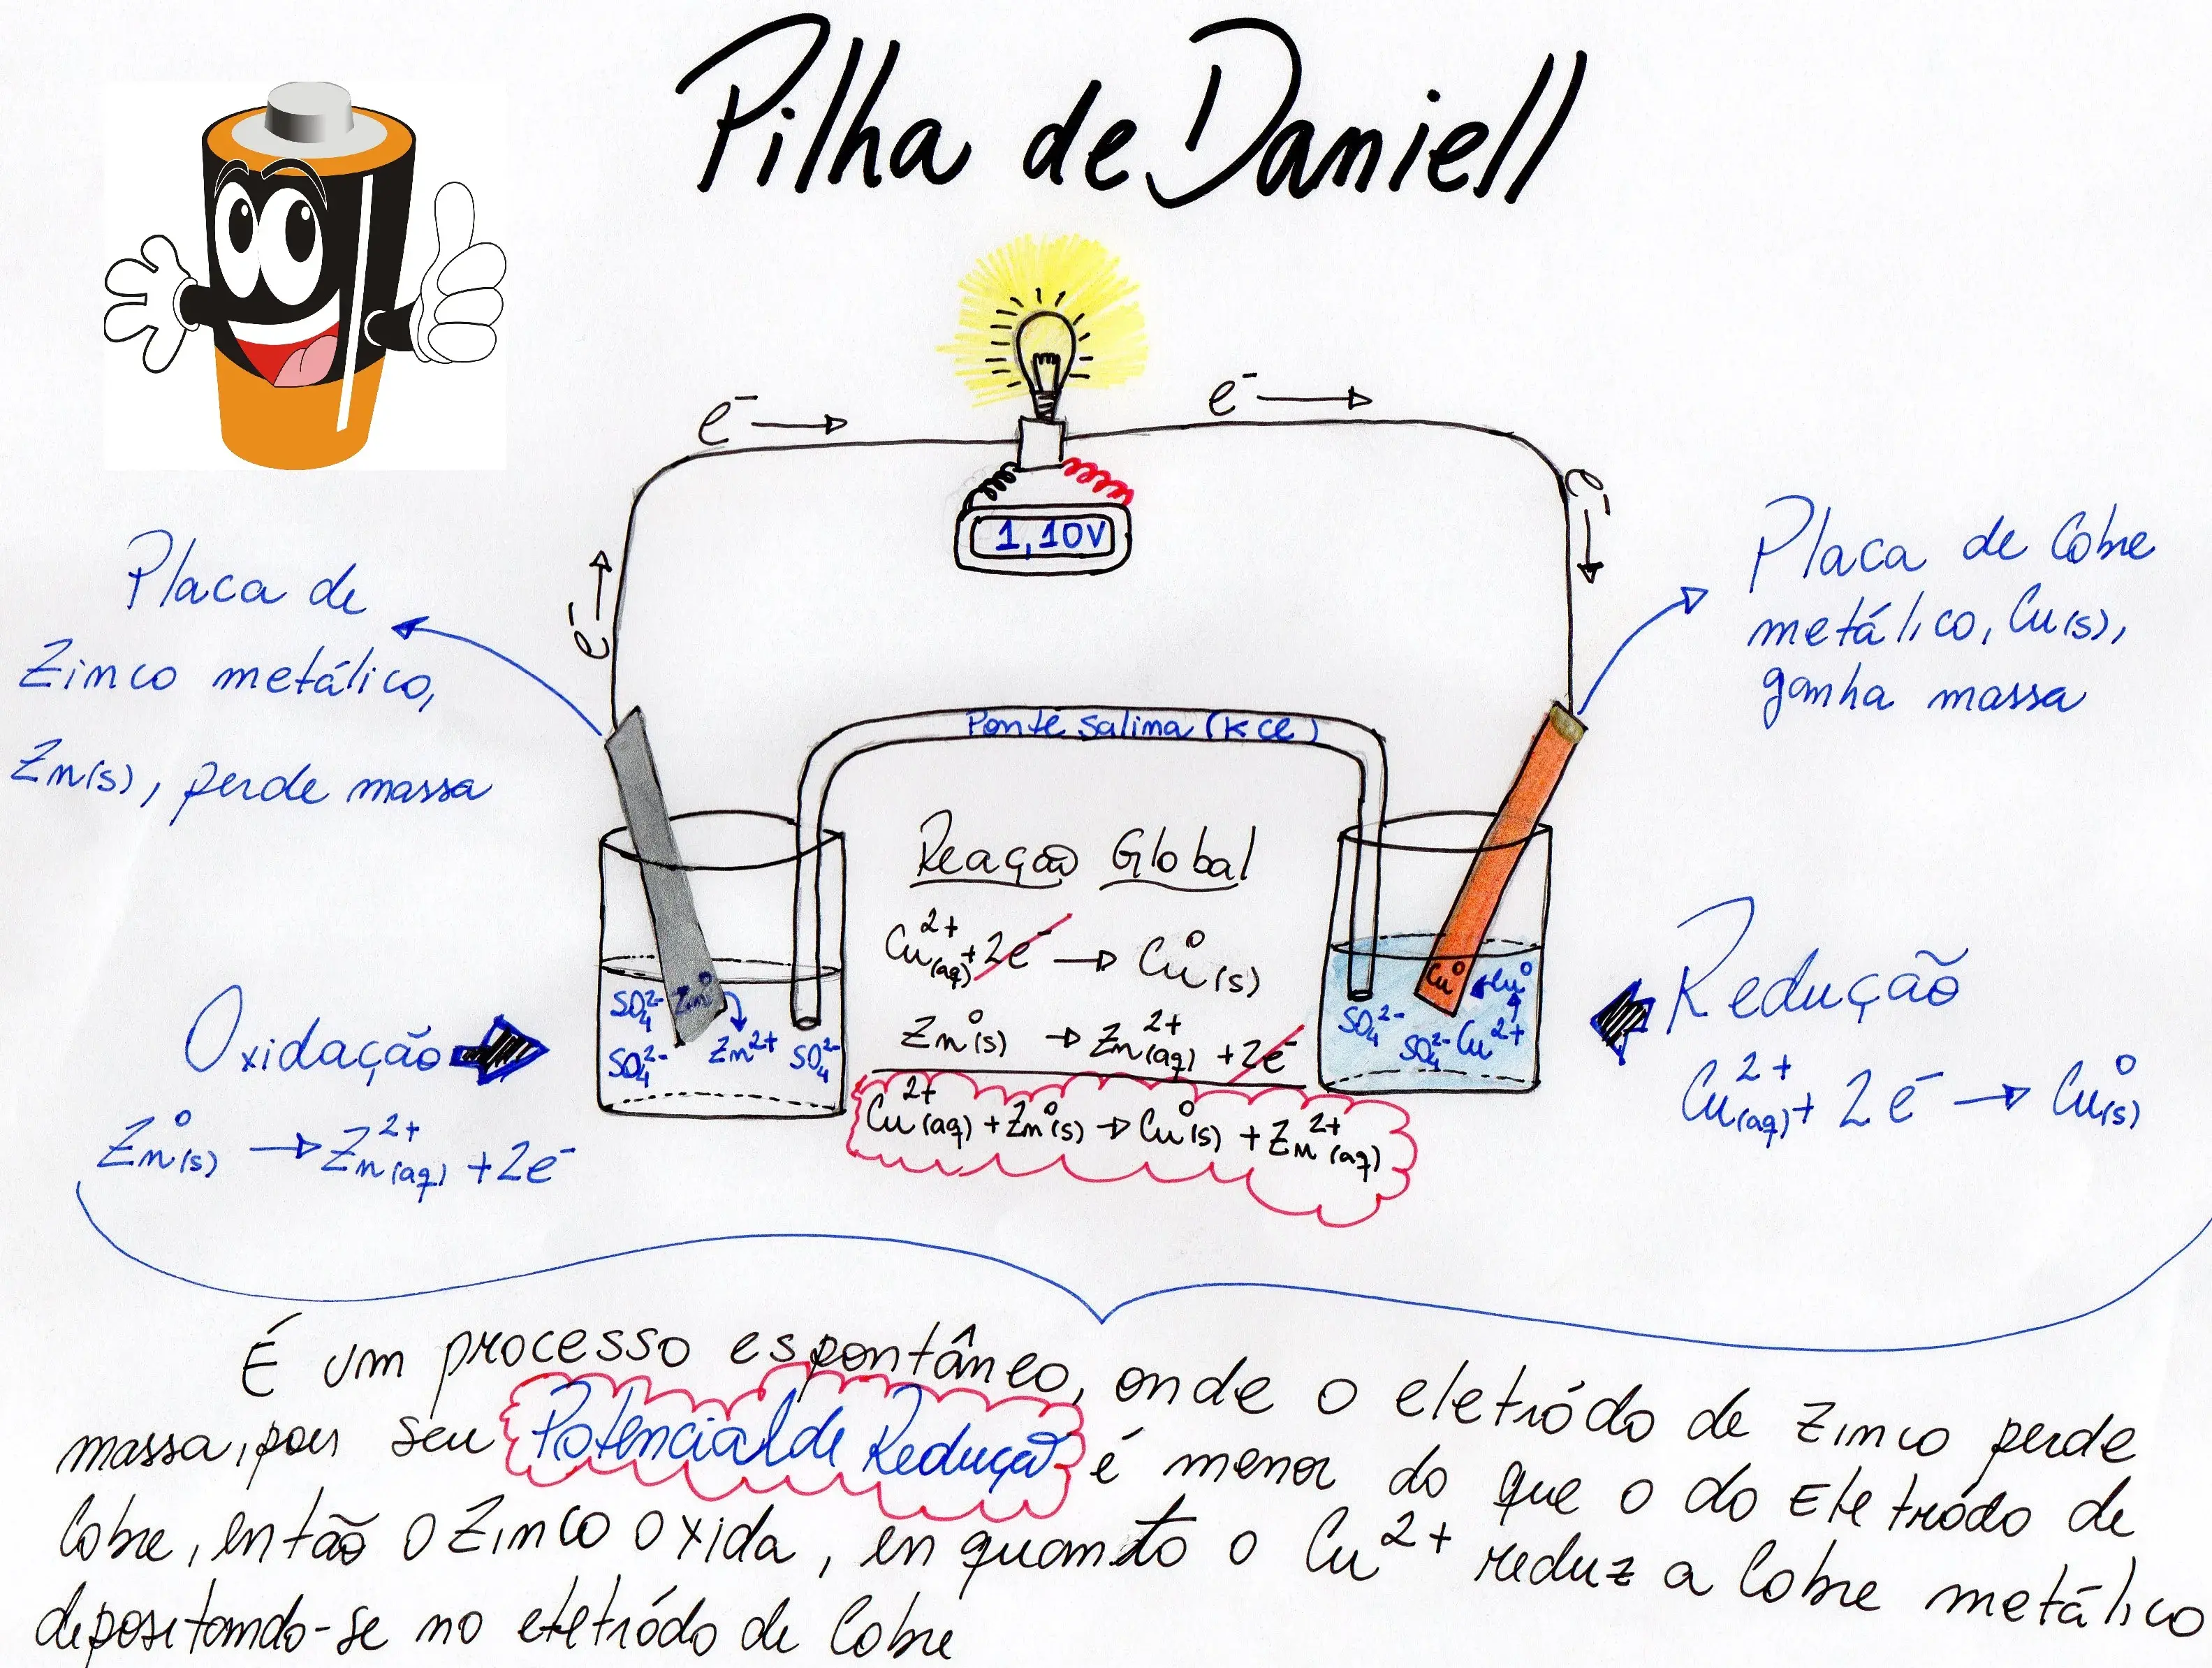 Pilha de Daniell
e⁻ →
e⁻ →
e⁻ →
e⁻ →
1,10V
Placa de
Zinco metálico,
Zn(s), perde massa
Placa de Cobre
metálico, Cu(s),
ganha massa
Ponte Salina (KCl)
Reação Global
Cu²⁺(aq) + 2e⁻ → Cu⁰(s)
Zn⁰(s) → Zn²⁺(aq) + 2e⁻
Cu²⁺(aq) + Zn⁰(s) → Cu⁰(s) + Zn²⁺(aq)
SO₄²⁻ Zn⁰
SO₄²⁻ Zn²⁺ SO₄²⁻
Cu⁰ Cu⁰
SO₄²⁻ SO₄²⁻ Cu²⁺
Oxidação
Zn⁰(s) → Zn²⁺(aq) + 2e⁻
Redução
Cu²⁺(aq) + 2e⁻ → Cu⁰(s)
É um processo espontâneo, onde o eletródo de zinco perde
massa, pois seu Potencial de Redução é menor do que o do Eletródo de
Cobre, então o Zinco oxida, enquanto o Cu²⁺ reduz a Cobre metálico
depositando-se no eletródo de Cobre